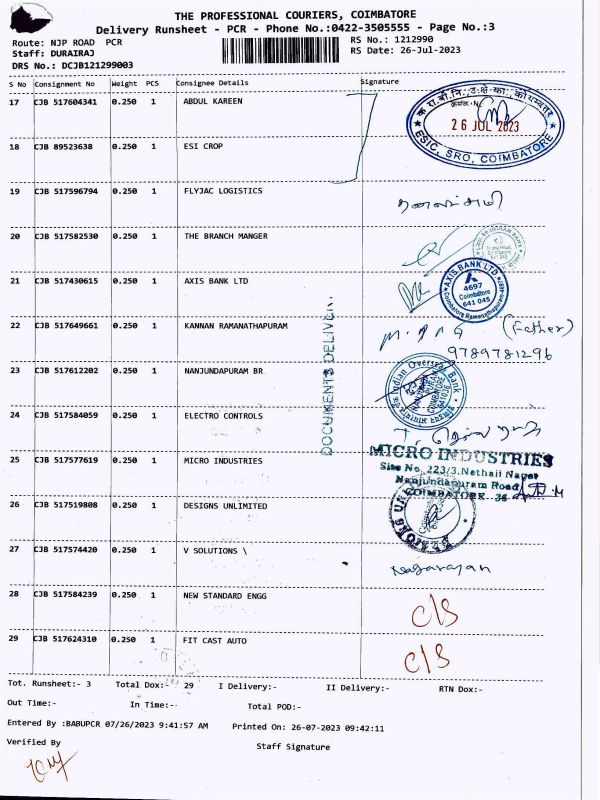 THE PROFESSIONAL COURIERS, COIMBATORE
Delivery Runsheet - PCR - Phone No.:0422-3505555 - Page No.:3
Route: NJP ROAD PCR
RS No.: 1212990
Staff: DURAIRAJ
RS Date: 26-Jul-2023
DRS No.: DCJB121299003
S No Consignment No Weight PCS Consignee Details Signature
17 CJB 517604341 0.250 1 ABDUL KAREEN
26 JUL 2023
ESIC, SRO, COIMBATORE
18 CJB 89523638 0.250 1 ESI CROP
19 CJB 517596794 0.250 1 FLYJAC LOGISTICS
20 CJB 517582530 0.250 1 THE BRANCH MANGER
21 CJB 517430615 0.250 1 AXIS BANK LTD
AXIS BANK LTD
4697
Coimbatore
641 045
22 CJB 517649661 0.250 1 KANNAN RAMANATHAPURAM
(Father)
9789781296
23 CJB 517612202 0.250 1 NANJUNDAPURAM BR
Indian Overseas Bank
DOCUMENTS DELIVE
24 CJB 517584059 0.250 1 ELECTRO CONTROLS
25 CJB 517577619 0.250 1 MICRO INDUSTRIES
MICRO INDUSTRIES
Site No. 223/3, Nethaji Nagar
Nanjundapuram Road,
COIMBATORE - 36
26 CJB 517519808 0.250 1 DESIGNS UNLIMITED
27 CJB 517574420 0.250 1 V SOLUTIONS \
Nagarajan
28 CJB 517584239 0.250 1 NEW STANDARD ENGG
C/S
29 CJB 517624310 0.250 1 FIT CAST AUTO
C/S
Tot. Runsheet:- 3 Total Dox:- 29 I Delivery:- II Delivery:- RTN Dox:-
Out Time:- In Time:-- Total POD:-
Entered By :BABUPCR 07/26/2023 9:41:57 AM Printed On: 26-07-2023 09:42:11
Verified By
Staff Signature